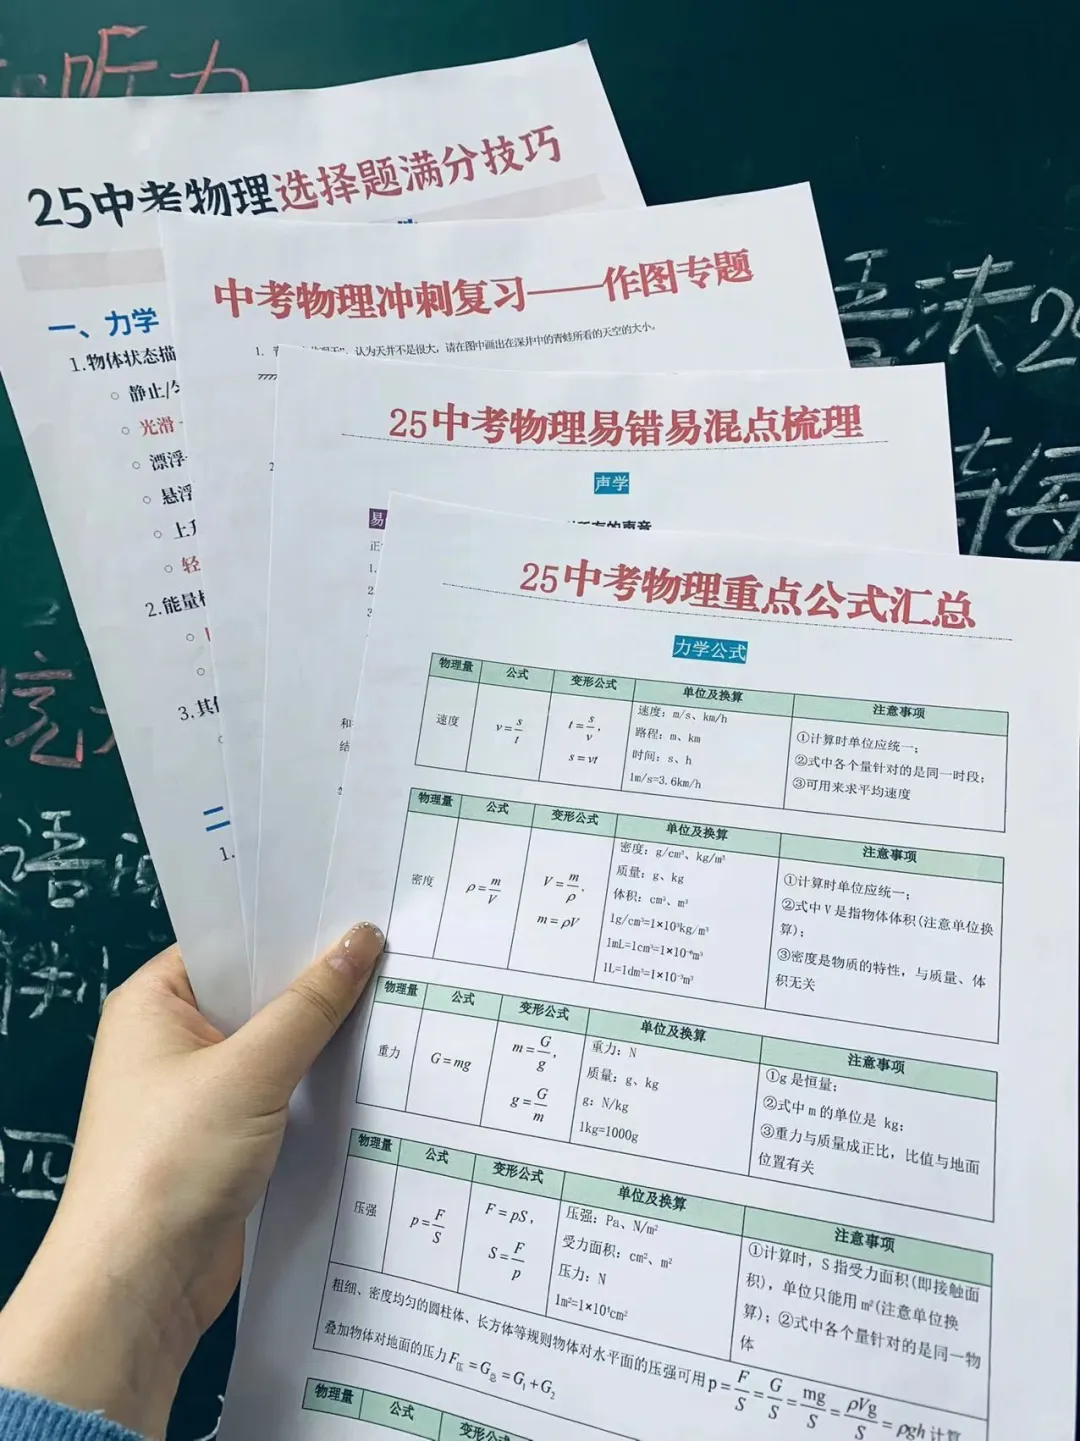 听力
25中考物理选择题满分技巧
一、力学
1.物体状态描
静止/
光滑
漂浮
悬浮
上升
轻
2.能量
3.其他
二
1.
中考物理冲刺复习——作图专题
认为天并不是很大，请在图中画出在深井中的青蛙所看的天空的大小。
25中考物理易错易混点梳理
声学
易
正
1.
和
结
25中考物理重点公式汇总
力学公式
物理量 公式 变形公式 单位及换算 注意事项
速度 v=s/t t=s/v, s=vt
速度：m/s、km/h
路程：m、km
时间：s、h
1m/s=3.6km/h
①计算时单位应统一；
②式中各个量针对的是同一时段；
③可用来求平均速度
物理量 公式 变形公式 单位及换算 注意事项
密度 ρ=m/V V=m/ρ, m=ρV
密度：g/cm³、kg/m³
质量：g、kg
体积：cm³、m³
1g/cm³=1×10³kg/m³
1mL=1cm³=1×10⁻⁶m³
1L=1dm³=1×10⁻³m³
①计算时单位应统一；
②式中V是指物体体积(注意单位换
算)；
③密度是物质的特性，与质量、体
积无关
物理量 公式 变形公式 单位及换算 注意事项
重力 G=mg m=G/g, g=G/m
重力：N
质量：g、kg
g：N/kg
1kg=1000g
①g是恒量；
②式中m的单位是 kg；
③重力与质量成正比，比值与地面
位置有关
物理量 公式 变形公式 单位及换算 注意事项
压强 p=F/S F=pS, S=F/p
压强：Pa、N/m²
受力面积：cm²、m²
压力：N
1m²=1×10⁴cm²
①计算时，S指受力面积(即接触面
积)，单位只能用m²(注意单位换
算)；②式中各个量针对的是同一物
体
粗细、密度均匀的圆柱体、长方体等规则物体对水平面的压强可用p=F/S=G/S=mg/S=ρVg/S=ρgh计算
叠加物体对地面的压力F压=G总=G₁+G₂
物理量 公式 变形公式
语法